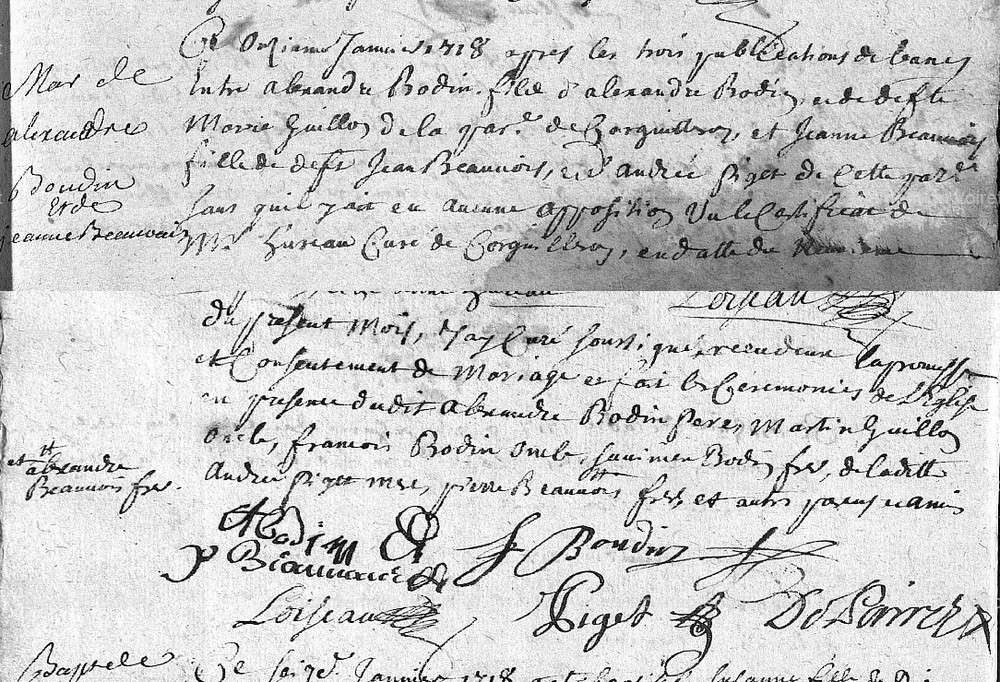 Mar de
alexandre
Boudin
et de
jeanne Beauvais
Ce Onzieme Janvier 1718 apres les trois publications de bancs
Entre alexandre Bodin fils d'alexandre Bodin, et de defte
Marie Guillon de la par.e de Corquilleroy, et Jeanne Beauvois
fille de deft Jean Beauvois, et d'andrée Piget de Cette par.e
sans quil y ait eu aucune apposition Vu le Certificat de
Mr Hureau Curé de Corquilleroy, en datte du Neuvieme
Loiseau
du present Mois, Je Curé soussigné, receu leur la promesse
et Consentement de Mariage et fait les Ceremonies de L'Eglise
en presence dudit alexandre Bodin pere, Martin Guillon
oncle, francois Bodin oncle, Bodin frer, de ladite
Andrée Piget mere, pierre Beauvois frer et autres parens et amis
et
alexandre
Beauvois frer.
A Bodin
P Beauvais
f Boudin
Loiseau
Piget
Baptele
Ce Seize Janvier 1718 Susanne fille de